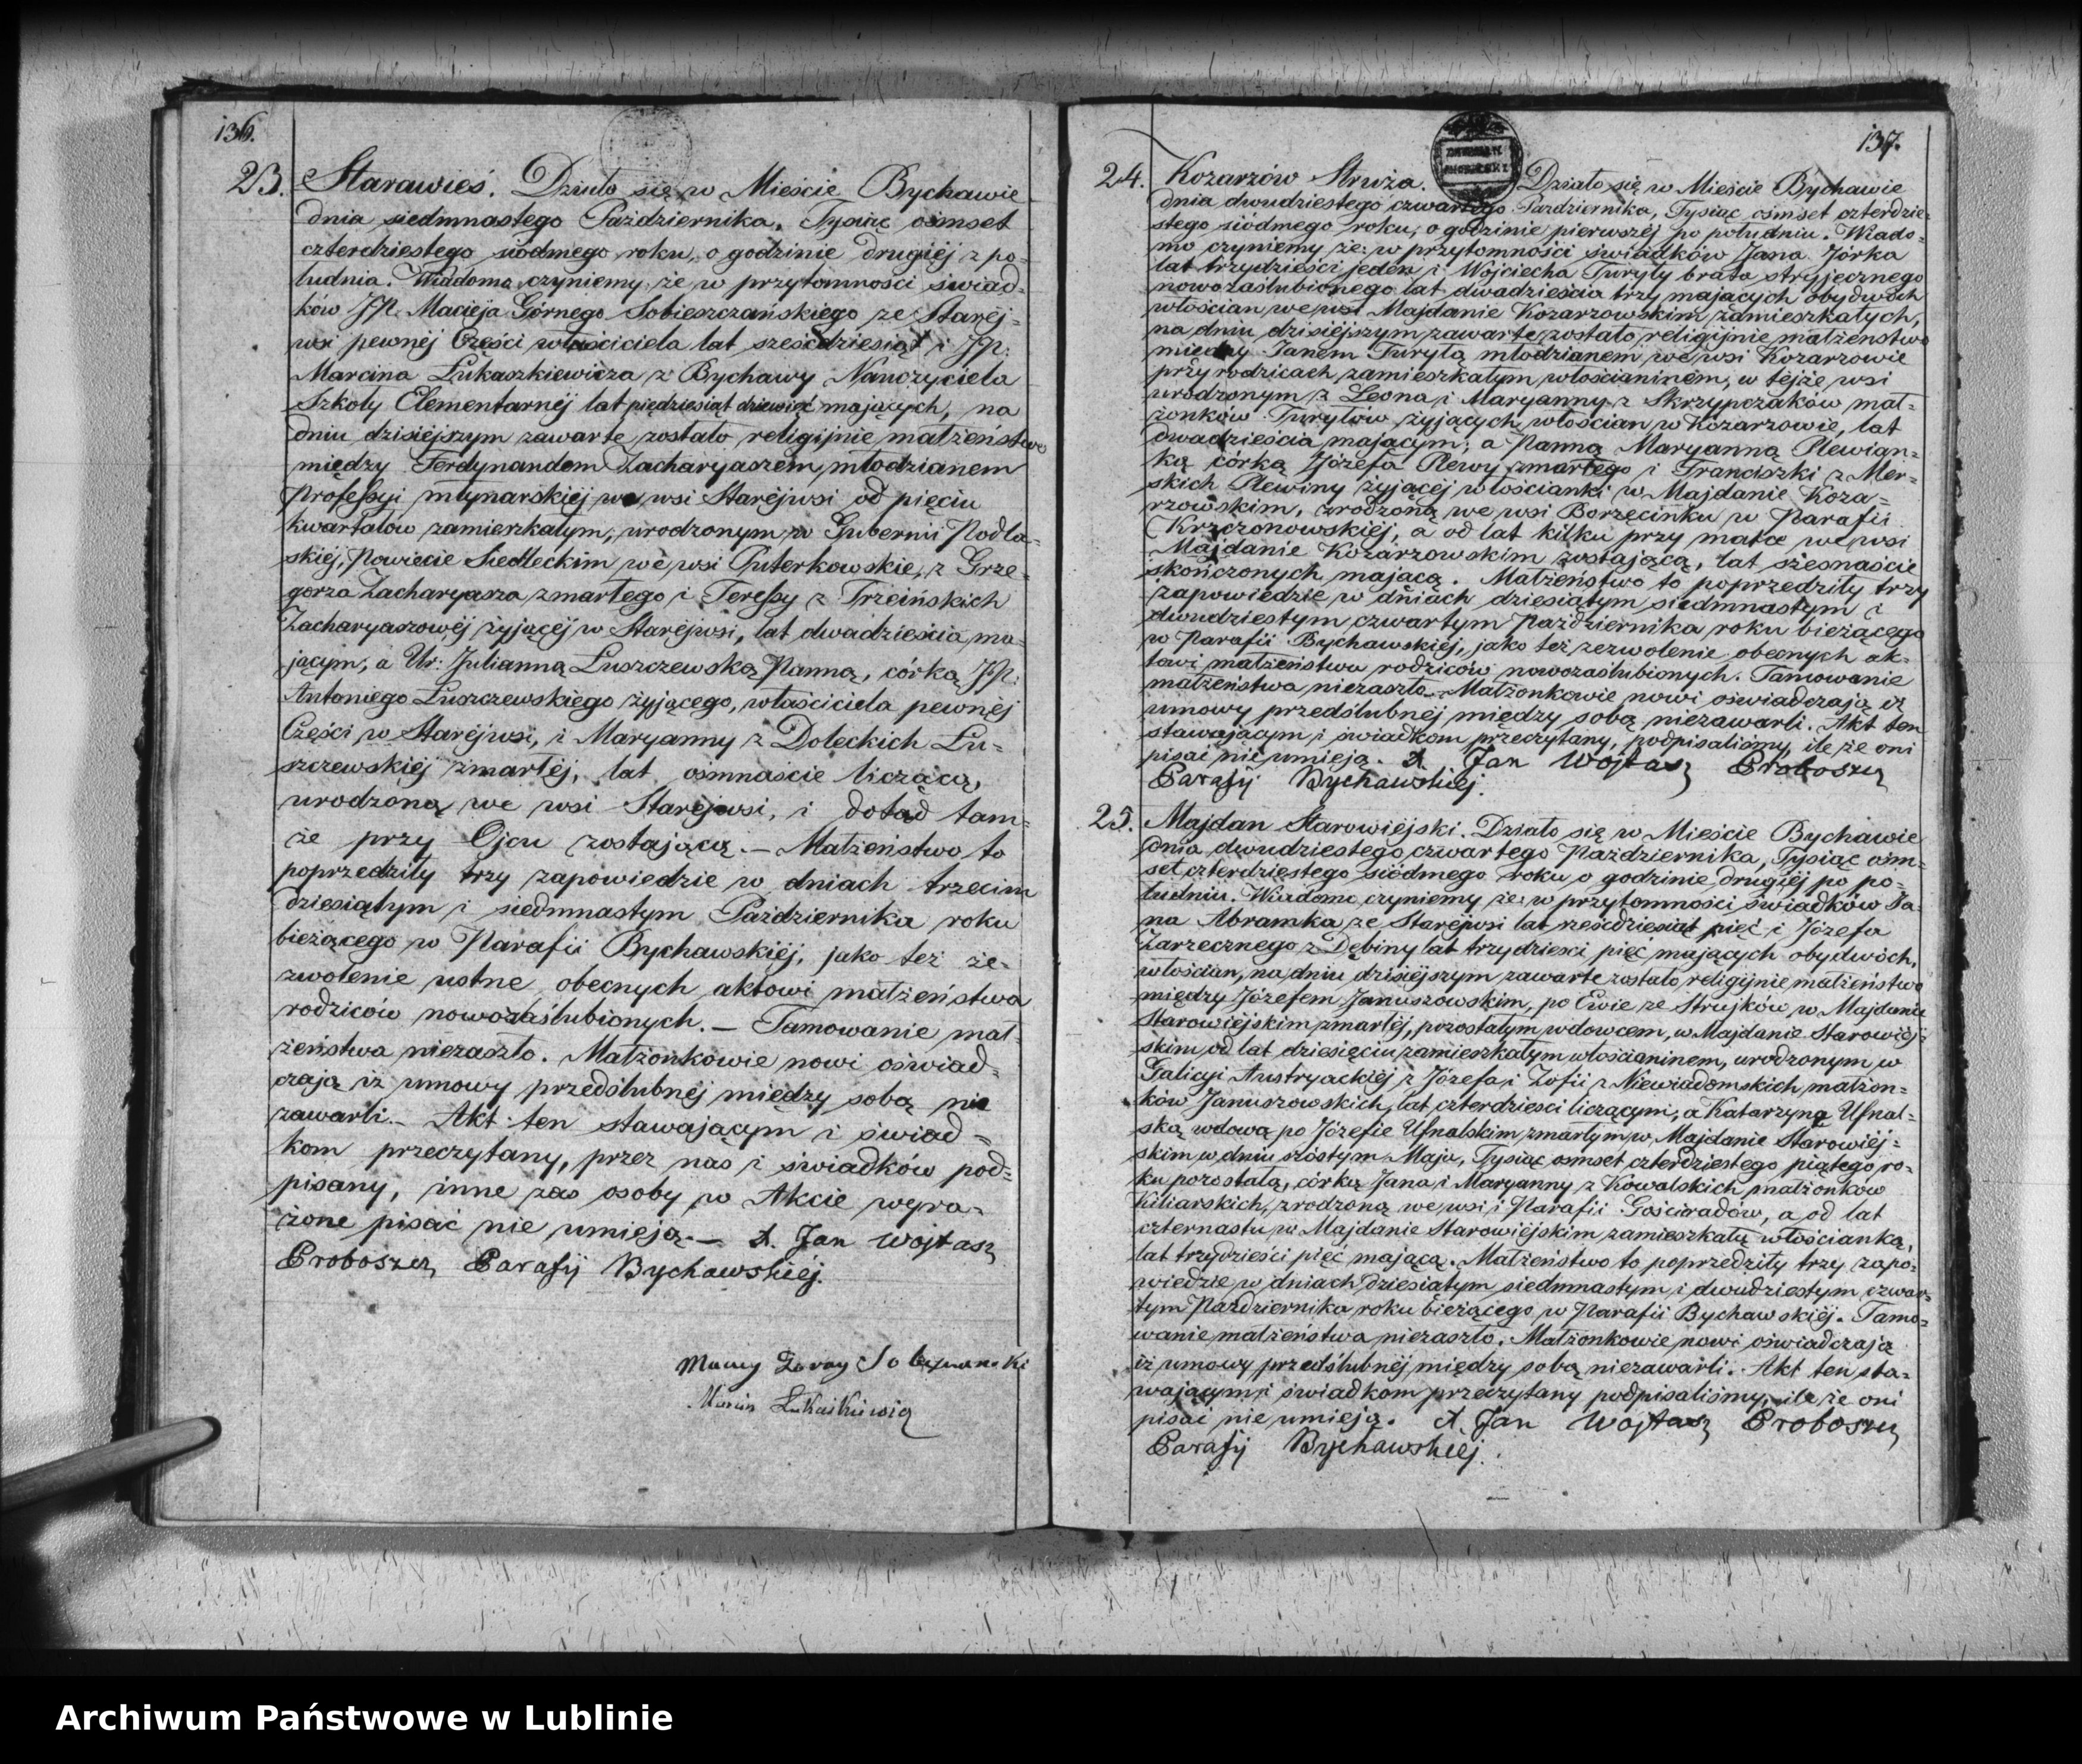 136.
23. Starawieś. Działo się w Mieście Bychawie
dnia siedmnastego Października, Tysiąc ośmset
czterdziestego siódmego roku, o godzinie drugiéj z po-
łudnia. Wiadomo czyniemy że w przytomności świad-
ków JP. Macieja Górnego Sobieszczańskiego ze Staréj-
wsi pewnéj Części właściciela lat sześćdziesiąt i JP.
Marcina Łukaszkiewicza z Bychawy Nauczyciela
Szkoły Elementarnéj lat pięćdziesiąt dziewięć mających, na
dniu dzisiéjszym zawarte zostało religijnie małżeństwo
między Ferdynandem Zacharyaszem, młodzianem
Professyi młynarskiéj we wsi Staréjwsi od pięciu
kwartałów zamieszkałym, urodzonym w Gubernii Podla-
skiéj, Powiecie Siedleckim, we wsi Puterkowskie, z Grze-
gorza Zacharyasza zmarłego i Teressy z Trzcińskich
Zacharyaszowéj żyjącéj w Staréjwsi, lat dwadzieścia ma-
jącym, a Ur: Julianną Łuszczewską Panną, córką JP.
Antoniego Łuszczewskiego żyjącego, właściciela pewnéj
Części w Staréjwsi, i Maryanny z Doleckich Łu-
szczewskiéj zmarłéj, lat ośmnaście liczącą,
urodzoną we wsi Staréjwsi, i dotąd tam-
że przy Ojcu zostającą. — Małżeństwo to
poprzedziły trzy zapowiedzie w dniach trzecim
dziesiątym i siedmnastym Października roku
bieżącego w Parafii Bychawskiéj, jako też ze-
zwolenie ustne obecnych aktowi małżeństwa
rodziców nowozaślubionych. — Tamowanie mał-
żeństwa niezaszło. Małżonkowie nowi oświad-
czają iż umowy przedślubnéj między sobą nie
zawarli. — Akt ten stawającym i świad-
kom przeczytany, przez nas i świadków pod-
pisany, inne zaś osoby w Akcie wyra-
żone pisać nie umieją. — X. Jan Wójtasz
Proboszcz Parafij Bychawskiéj.
Marcin Łukaszkiewicz
137.
24. Kozarzów Struża. Działo się w Mieście Bychawie
dnia dwudziestego czwartego Października, Tysiąc ośmset czterdzie-
stego siódmego roku, o godzinie pierwszéj po południu. Wiado-
mo czyniemy że: w przytomności świadków Jana Jórka
lat trzydzieści jeden i Wojciecha Turyły brata stryjecznego
nowozaślubionego lat dwadzieścia trzy mających obydwóch
włościan we wsi Majdanie Kozarzowskim zamieszkałych,
na dniu dzisiéjszym zawarte zostało religijnie małżeństwo
między Janem Turyłą młodzianem we wsi Kozarzowie
przy rodzicach zamieszkałym włościaninem, w téjże wsi
urodzonym z Leona i Maryanny z Skrzypczaków mał-
żonków Turyłów żyjących włościan w Kozarzowie, lat
dwadzieścia mającym; a Panną Maryanną Plewian-
ką córką Józefa Plewy zmarłego i Franciszki z Mer-
skich Plewiny żyjącéj włościanki w Majdanie Koza-
rzowskim, zrodzoną we wsi Borzęcinku w Parafii
Krzczonowskiéj, a od lat kilku przy matce we wsi
Majdanie Kozarzowskim zostającą, lat szesnaście
skończonych mającą. Małżeństwo to poprzedziły trzy
zapowiedzie w dniach dziesiątym siedmnastym i
dwudziestym czwartym Października roku bieżącego
w Parafii Bychawskiéj, jako też zezwolenie obecnych ak-
towi małżeństwa rodziców nowozaślubionych. Tamowanie
małżeństwa niezaszło. Małżonkowie nowi oświadczają iż
umowy przedślubnéj między sobą niezawarli. Akt ten
stawającym i świadkom przeczytany, podpisaliśmy, ile że oni
pisać nie umieją. X. Jan Wójtasz Proboszcz
Parafij Bychawskiéj.
25. Majdan Starowiejski. Działo się w Mieście Bychawie
dnia dwudziestego czwartego Października, Tysiąc ośm-
set czterdziestego siódmego roku o godzinie drugiéj po po-
łudniu. Wiadomo czyniemy że: w przytomności świadków Ja-
na Abramka ze Staréjwsi lat sześćdziesiąt pięć i Józefa
Zarzecznego z Dębiny lat trzydzieści pięć mających obydwóch,
włościan, na dniu dzisiéjszym zawarte zostało religijnie małżeństwo
między Józefem Januszowskim, po Ewie ze Strujków w Majdanie
Starowiéjskim zmarłéj, pozostałym wdowcem, w Majdanie Starowiéj-
skim od lat dziesięciu zamieszkałym włościaninem, urodzonym w
Galicyi Austryackiéj z Józefa i Zofii z Niewiadomskich małżon-
ków Januszowskich, lat czterdzieści liczącym, a Katarzyną Ufnal-
ską wdową po Józefie Ufnalskim zmarłym w Majdanie Starowiéj-
skim w dniu szóstym Maja, Tysiąc ośmset czterdziestego piątego ro-
ku pozostałą, córką Jana i Maryanny z Kowalskich małżonków
Kiliarskich, zrodzoną we wsi i Parafii Gościeradów, a od lat
czternastu w Majdanie Starowiejskim zamieszkałą włościanką,
lat trzydzieści pięć mającą. Małżeństwo to poprzedziły trzy zapo-
wiedzie w dniach dziesiątym siedmnastym i dwudziestym czwar-
tym Października roku bieżącego w Parafii Bychawskiéj. Tamo-
wanie małżeństwa niezaszło. Małżonkowie nowi oświadczają
iż umowy przedślubnéj między sobą niezawarli. Akt ten sta-
wającym i świadkom przeczytany podpisaliśmy, ile że oni
pisać nie umieją. X. Jan Wójtasz Proboszcz
Parafij Bychawskiéj.
Archiwum Państwowe w Lublinie